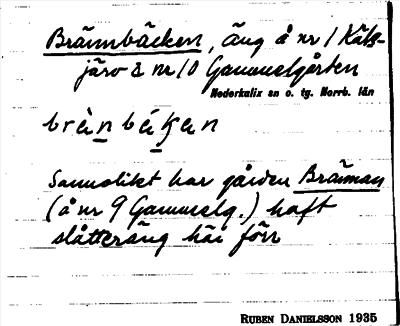 Brännbäcken, äng å nr 1 Käls-
järv & nr 10 Gammelgården
Nederkalix sn o. tg. Norrb. län
brànbákan
Sannolikt har gården Bränman
(å nr 9 Gammelg.) haft
slåtteräng här förr
RUBEN DANIELSSON 1935